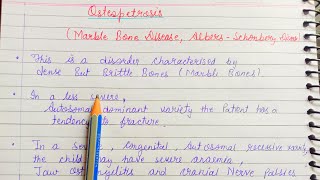 Osteopetrosis
(Marble Bone Disease, Albers-Schonberg
• This is a disorder characterised by
dense But Brittle Bones (Marble Bones)
• In a less severe,
Autosomal dominant variety the Patent has a
tendency to fracture.
• In a Severe, Congenital, Autosomal recessive variety
the child may have severe anaemia,
Jaw Osteomyelitis and cranial Nerve Palsies